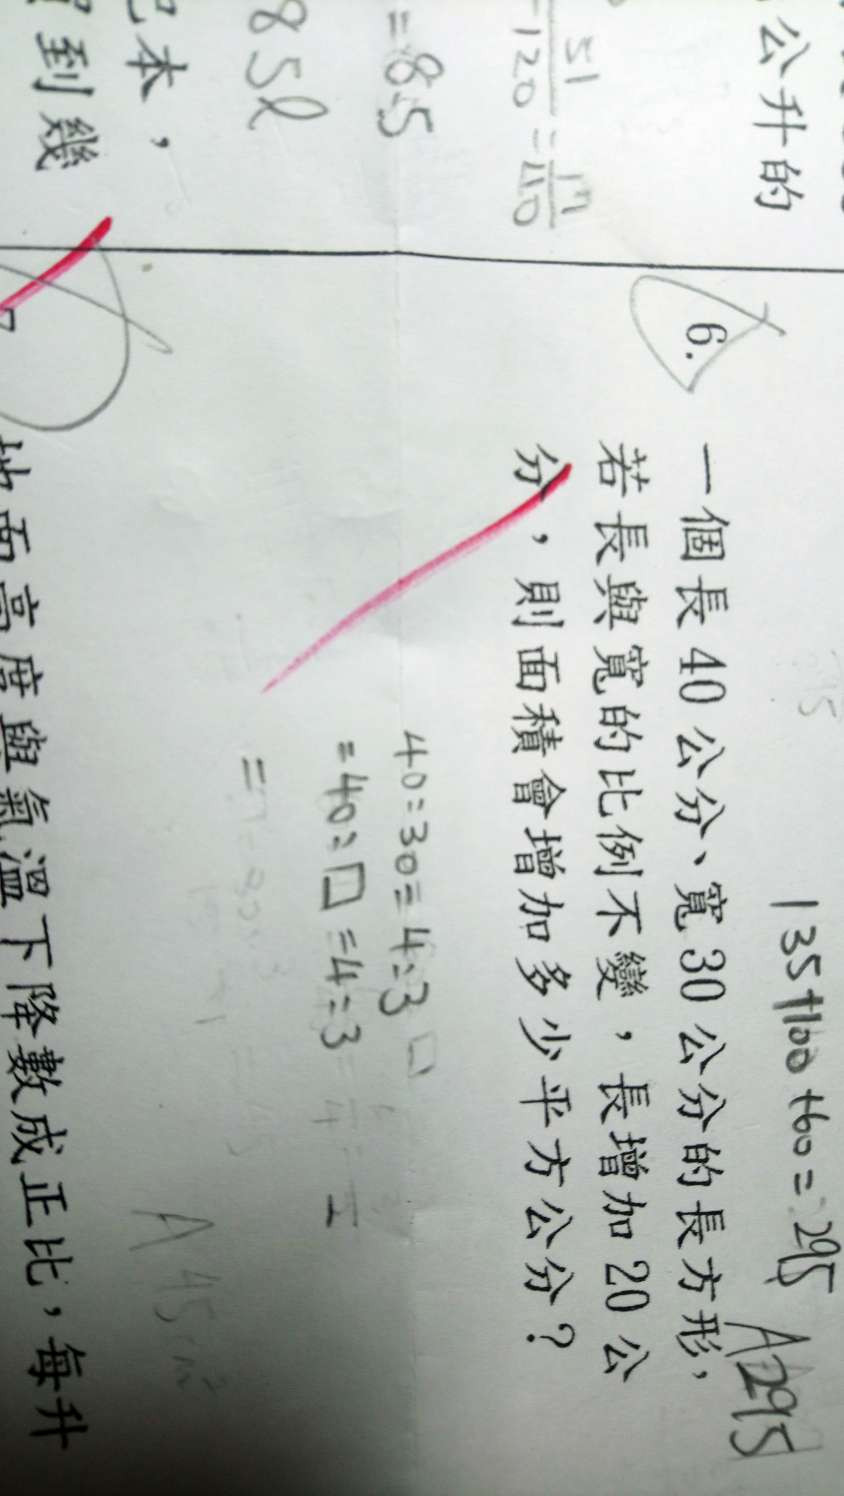 公升的
51/120 = 17/40
= 8.5
85l
本，
到幾
135+100+60=295
A295
6.
一個長40公分、寬30公分的長方形，
若長與寬的比例不變，長增加20公
分，則面積會增加多少平方公分？
40:30=4:3
=40:□=4:3
=
A 45cm²
地面高度與氣溫下降數成正比，每升